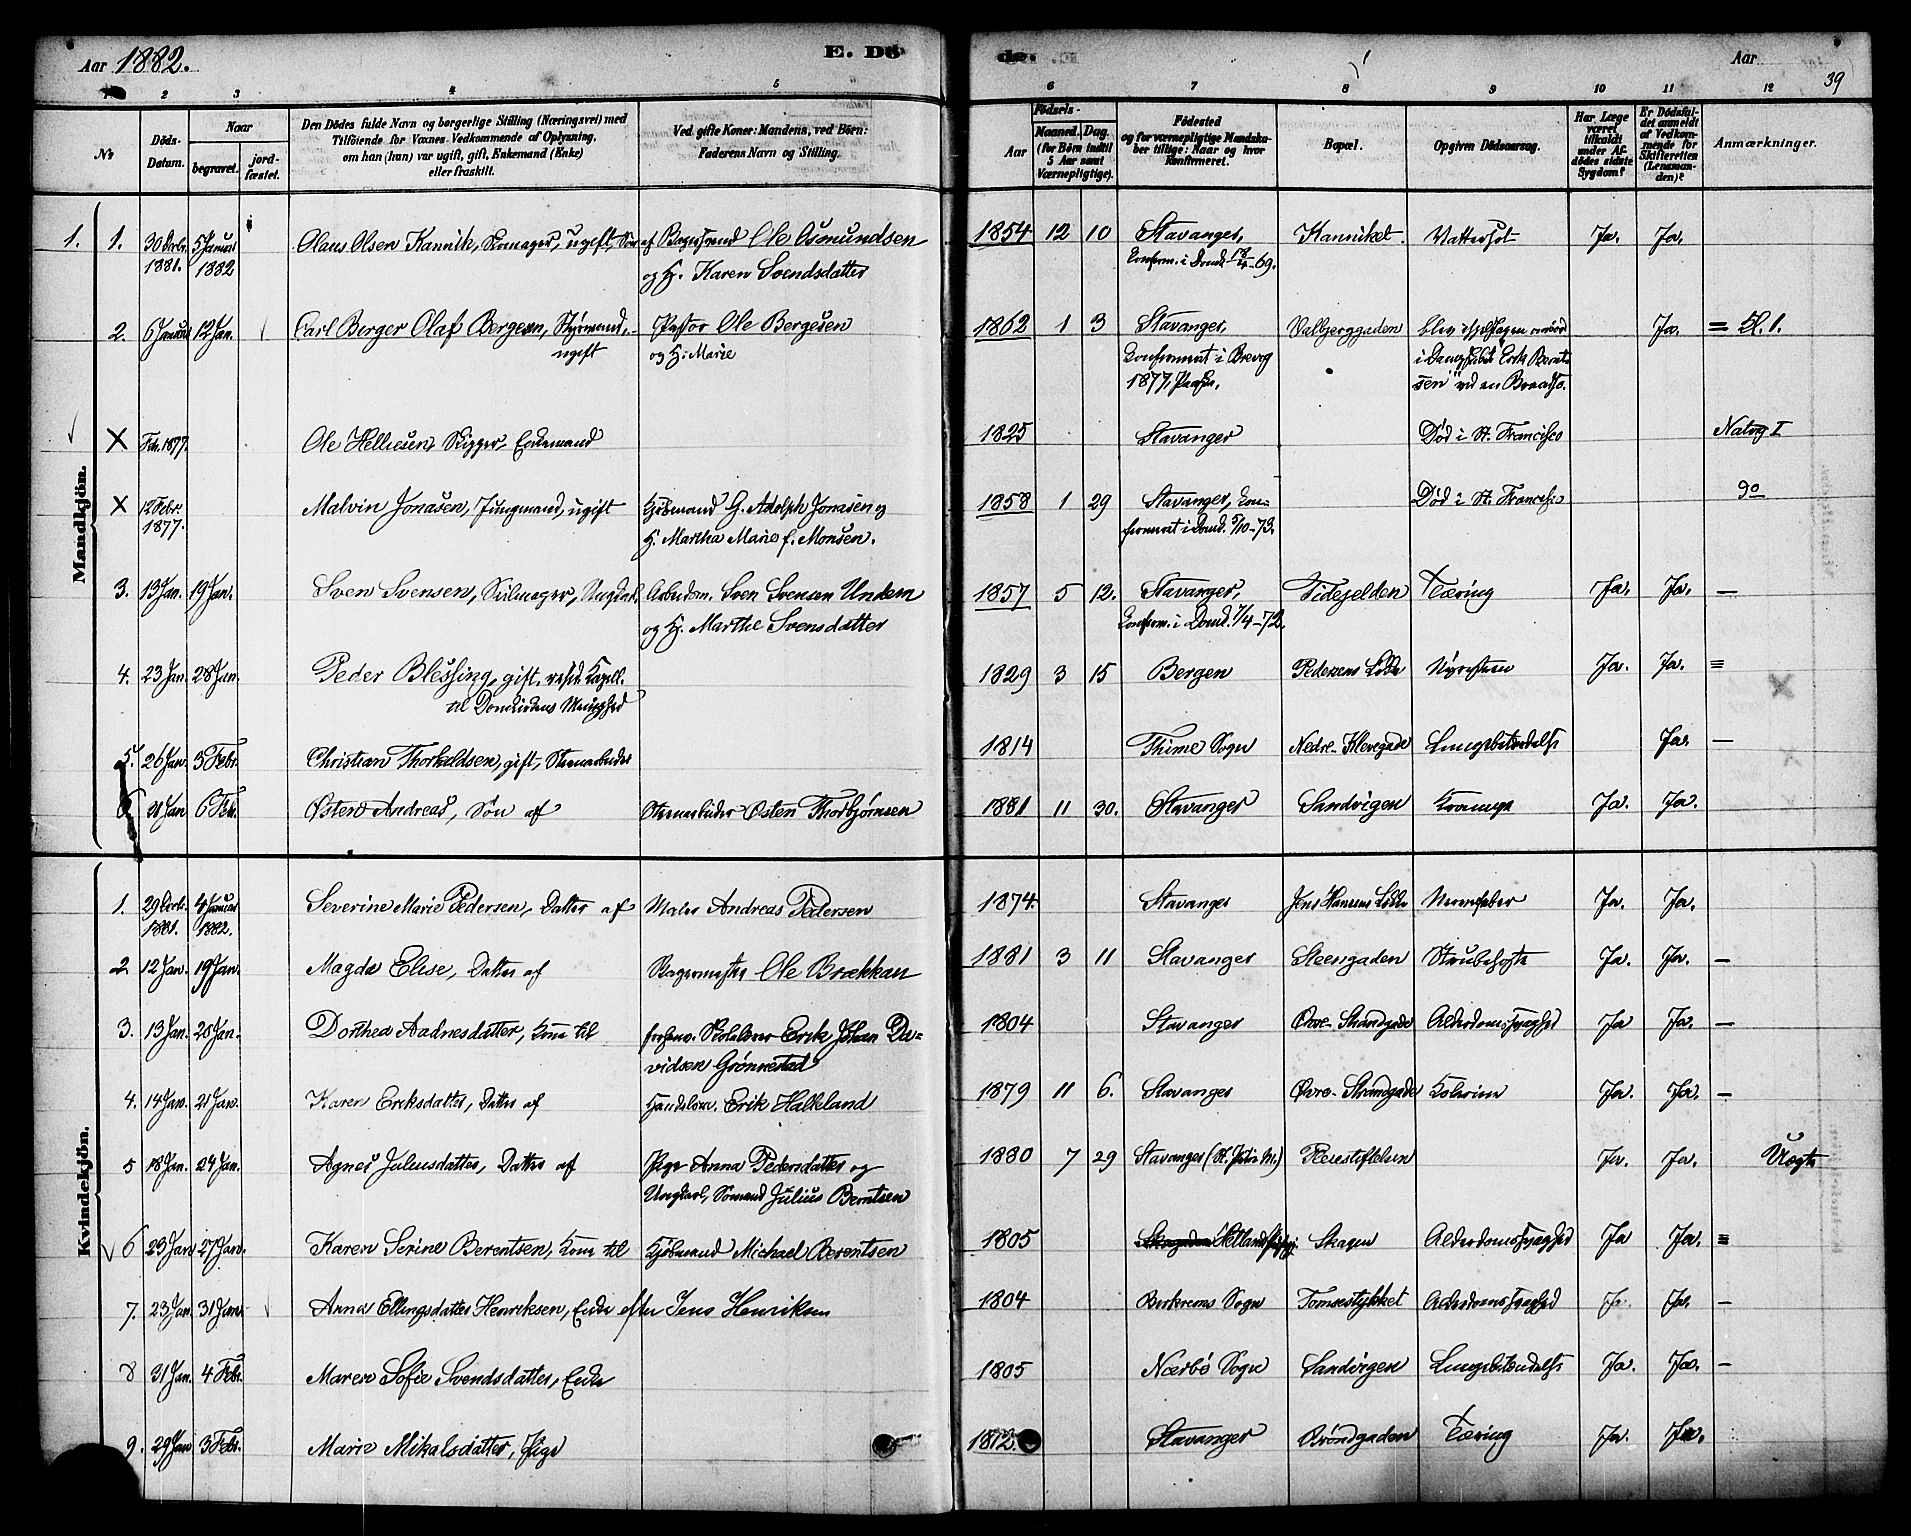 Aar 1882.
E. Dö
de.
Aar
39
1 2 3 4 5
6 7 8 9 10 11 12
No
Döds-Datum.
Naar
begravet.
jord-fæstet.
Den Dödes fulde Navn og borgerlige Stilling (Næringsvei) med
Tilföiende for Voxnes Vedkommende af Oplysning,
om han (hun) var ugift, gift, Enkemand (Enke)
eller fraskilt.
Ved gifte Koner: Mandens, ved Börn:
Faderens Navn og Stilling.
Födsels-
Aar
Maaned. Dag.
(for Börn indtil
5 Aar samt
Værnepligtige).
Födested
og for værnepligtige Mandska-
ber tillige: Naar og hvor
Konfirmeret.
Bopæl.
Opgiven Dödsaarsag.
Har Læge
været
tilkaldt
under Af-
dödes sidste
Sygdom?
Er Dödsfal-
det anmeldt
af Vedkom-
mende for
Skifteretten
(Lensman-
den)?
Anmærkninger.
Mandkjön.
1. 1. 30 Decbr. 1881. 5 Januar 1882 Olaus Olsen Kannik, Skomager, ugift, Søn af Ole Osmundsen
og H. Karen Svendsdatter
1854 12 10 Stavanger, Konfirm. i Domk. 18/4-69. Kanniket. Vattersot Ja. Ja.
2. 6 Januar 12 Jan. Carl Berger Olaf Bergesen, Styrmand, ugift Pastor Ole Bergesen
og H. Marie
1862 1 3 Stavanger, Konfirmert i Brevig 1877, Valbjerggaden blev ihjelslagen ombord
i Dampskibet Erik Berntsen" ved en Ja. = El. 1.
X Febr. 1877. Ole Helliesen, Skipper, Enkemand 1825 Stavanger Død i St. Francisco Natvig I
X 12 Febr. 1877. Malvin Jonasen, Jungmand, ugift Kjøbmand G. Adolph Jonasen og
H. Martha Marie f. Monsen.
1858 1 29 Stavanger, konfirmert i Domk. 5/10-73. Død i St. Francisco do
3. 13 Jan. 19 Jan. Sven Svensen, Seilmager, Ungkarl, Arbeidsm. Sven Svensen Undem
og H. Marthe Svensdatter
1857 5 12. Stavanger, Konfirm. i Domk. 7/4-72. Videsjelden Tæring Ja. Ja. —
4. 23 Jan. 28 Jan. Peder Blessing, gift, resid. Kapell.
til Domkirkens Menighed
1829 3 15 Bergen Pedersens Løkke Nyresteen Ja. Ja. =
5. 26 Jan. 3 Febr. Christian Thorkeldsen, gift, Steenarbeider 1814 Thime Sogn Nedre Klevegade Lungebetændelse Ja. —
6 21 Jan 6 Feb. Østen Andreas, Søn af Steenarbeider Østen Thorbjørnsen 1881 11 30. Stavanger Sandvigen Krampe Ja. Ja.
Kvindekjön.
1. 29 Decbr. 1881. 4 Januar 1882. Severine Marie Pedersen, Datter af Maler Andreas Pedersen 1874. Stavanger Jens Hansens Løkke Nervefeber Ja. Ja.
2 12 Jan. 19 Jan. Magda Elise, Datter af Bagermester Ole Brækkan 1881 3 11 Stavanger Steengaden Strubehoste Ja. Ja. —
3. 13 Jan. 20 Jan. Dorthea Aadnesdatter, Kone til forhenv. Skolelærer Erik Johan Da-
vidsen Grønnestad
1804 Stavanger Øvre Strandgade Alderdomssvaghed Ja Ja. —
4. 14 Jan. 21 Jan. Karen Eriksdatter, Datter af Handelsm. Erik Halkeland 1879 11 6. Stavanger Øvre Strandgade Kolerine Ja. Ja. —
5 18 Jan. 24 Jan. Agnes Juliusdatter, Datter af Pige Anna Pedersdatter og
Ungkarl, Sømand Julius Berntsen
1880 7 29 Stavanger (St. Petri M.) Pleiestiftelsen Ja. Ja. Uægte
6 23 Jan 27 Jan. Karen Serine Berentsen, Kone til Kjøbmand Michael Berentsen 1805 Skagen Alderdomssvaghed Ja Ja. =
7. 23 Jan. 31 Jan. Anna Ellingsdatter Henriksen, Enke efter Jens Henriksen 1804 Birkrems Sogn Tomsestykket Alderdomssvaghed Ja. Ja. —
8 31 Jan. 4 Febr. Maren Sofie Svendsdatter, Enke 1805 Nærbø Sogn Sandvigen Lungebetændelse Ja. Ja. —
9. 29 Jan 3 Febr. Marie Mikalsdatter, Pige 1812. Stavanger Brøndgaden Tæring Ja. Ja.